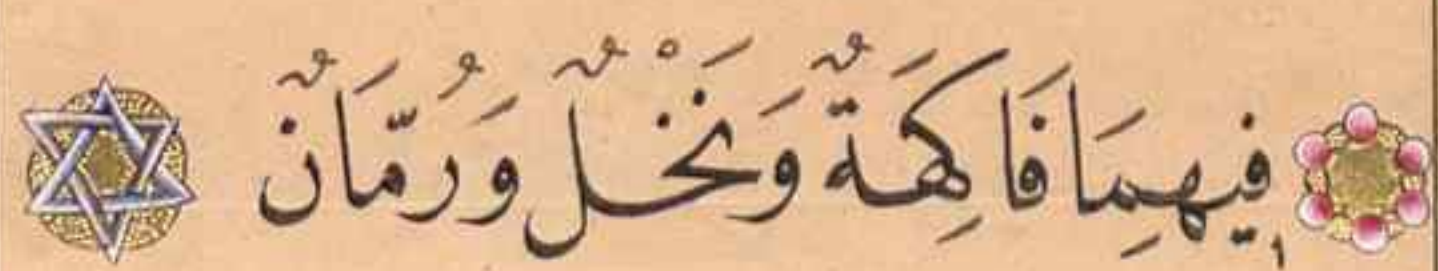 فِيهِمَا فَاكِهَةٌ وَنَخْلٌ وَرُمَّانٌ